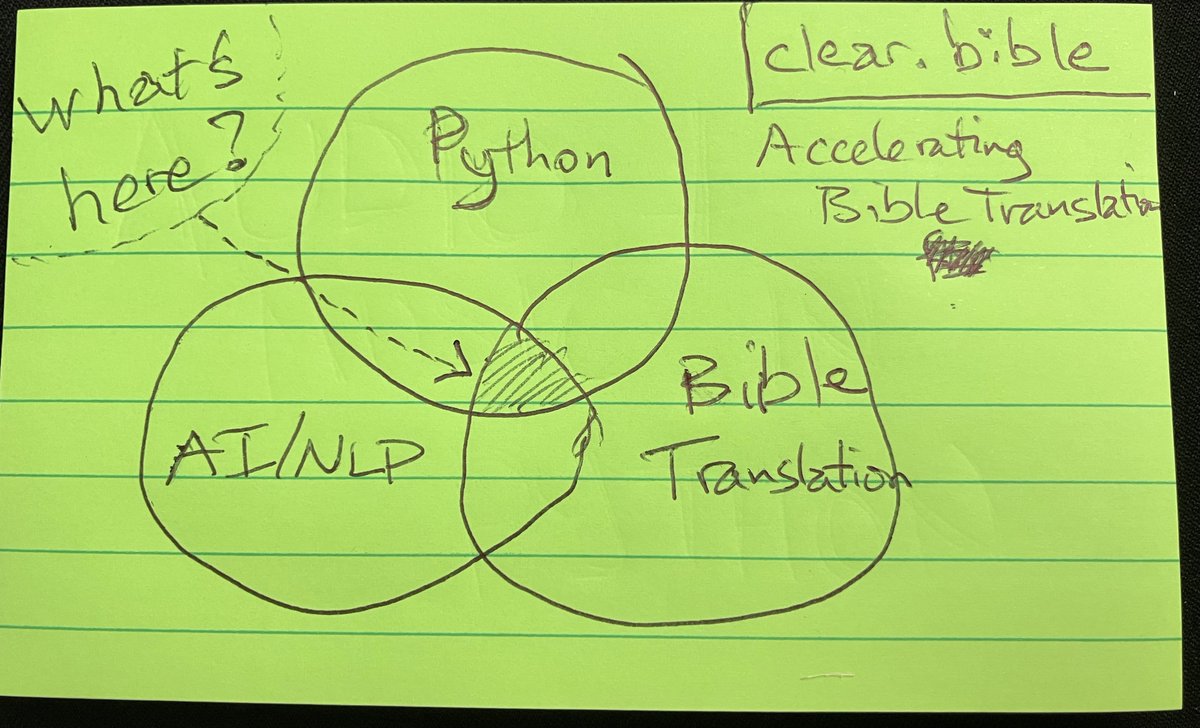 what's
here?
Python
clear.bible
Accelerating
Bible Translation
AI/NLP
Bible
Translation